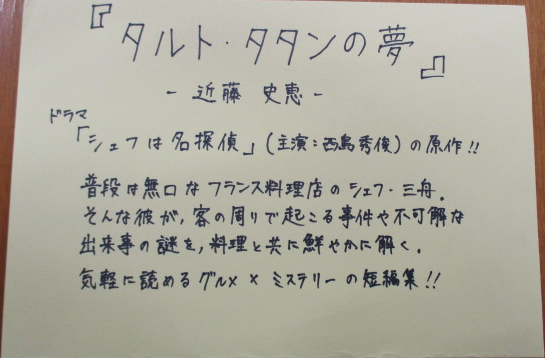 『タルト・タタンの夢』
- 近藤 史恵 -
ドラマ
「シェフは名探偵」(主演:西島秀俊)の原作!!
普段は無口なフランス料理店のシェフ・三舟.
そんな彼が,客の周りで起こる事件や不可解な
出来事の謎を,料理と共に鮮やかに解く.
気軽に読めるグルメ×ミステリーの短編集!!